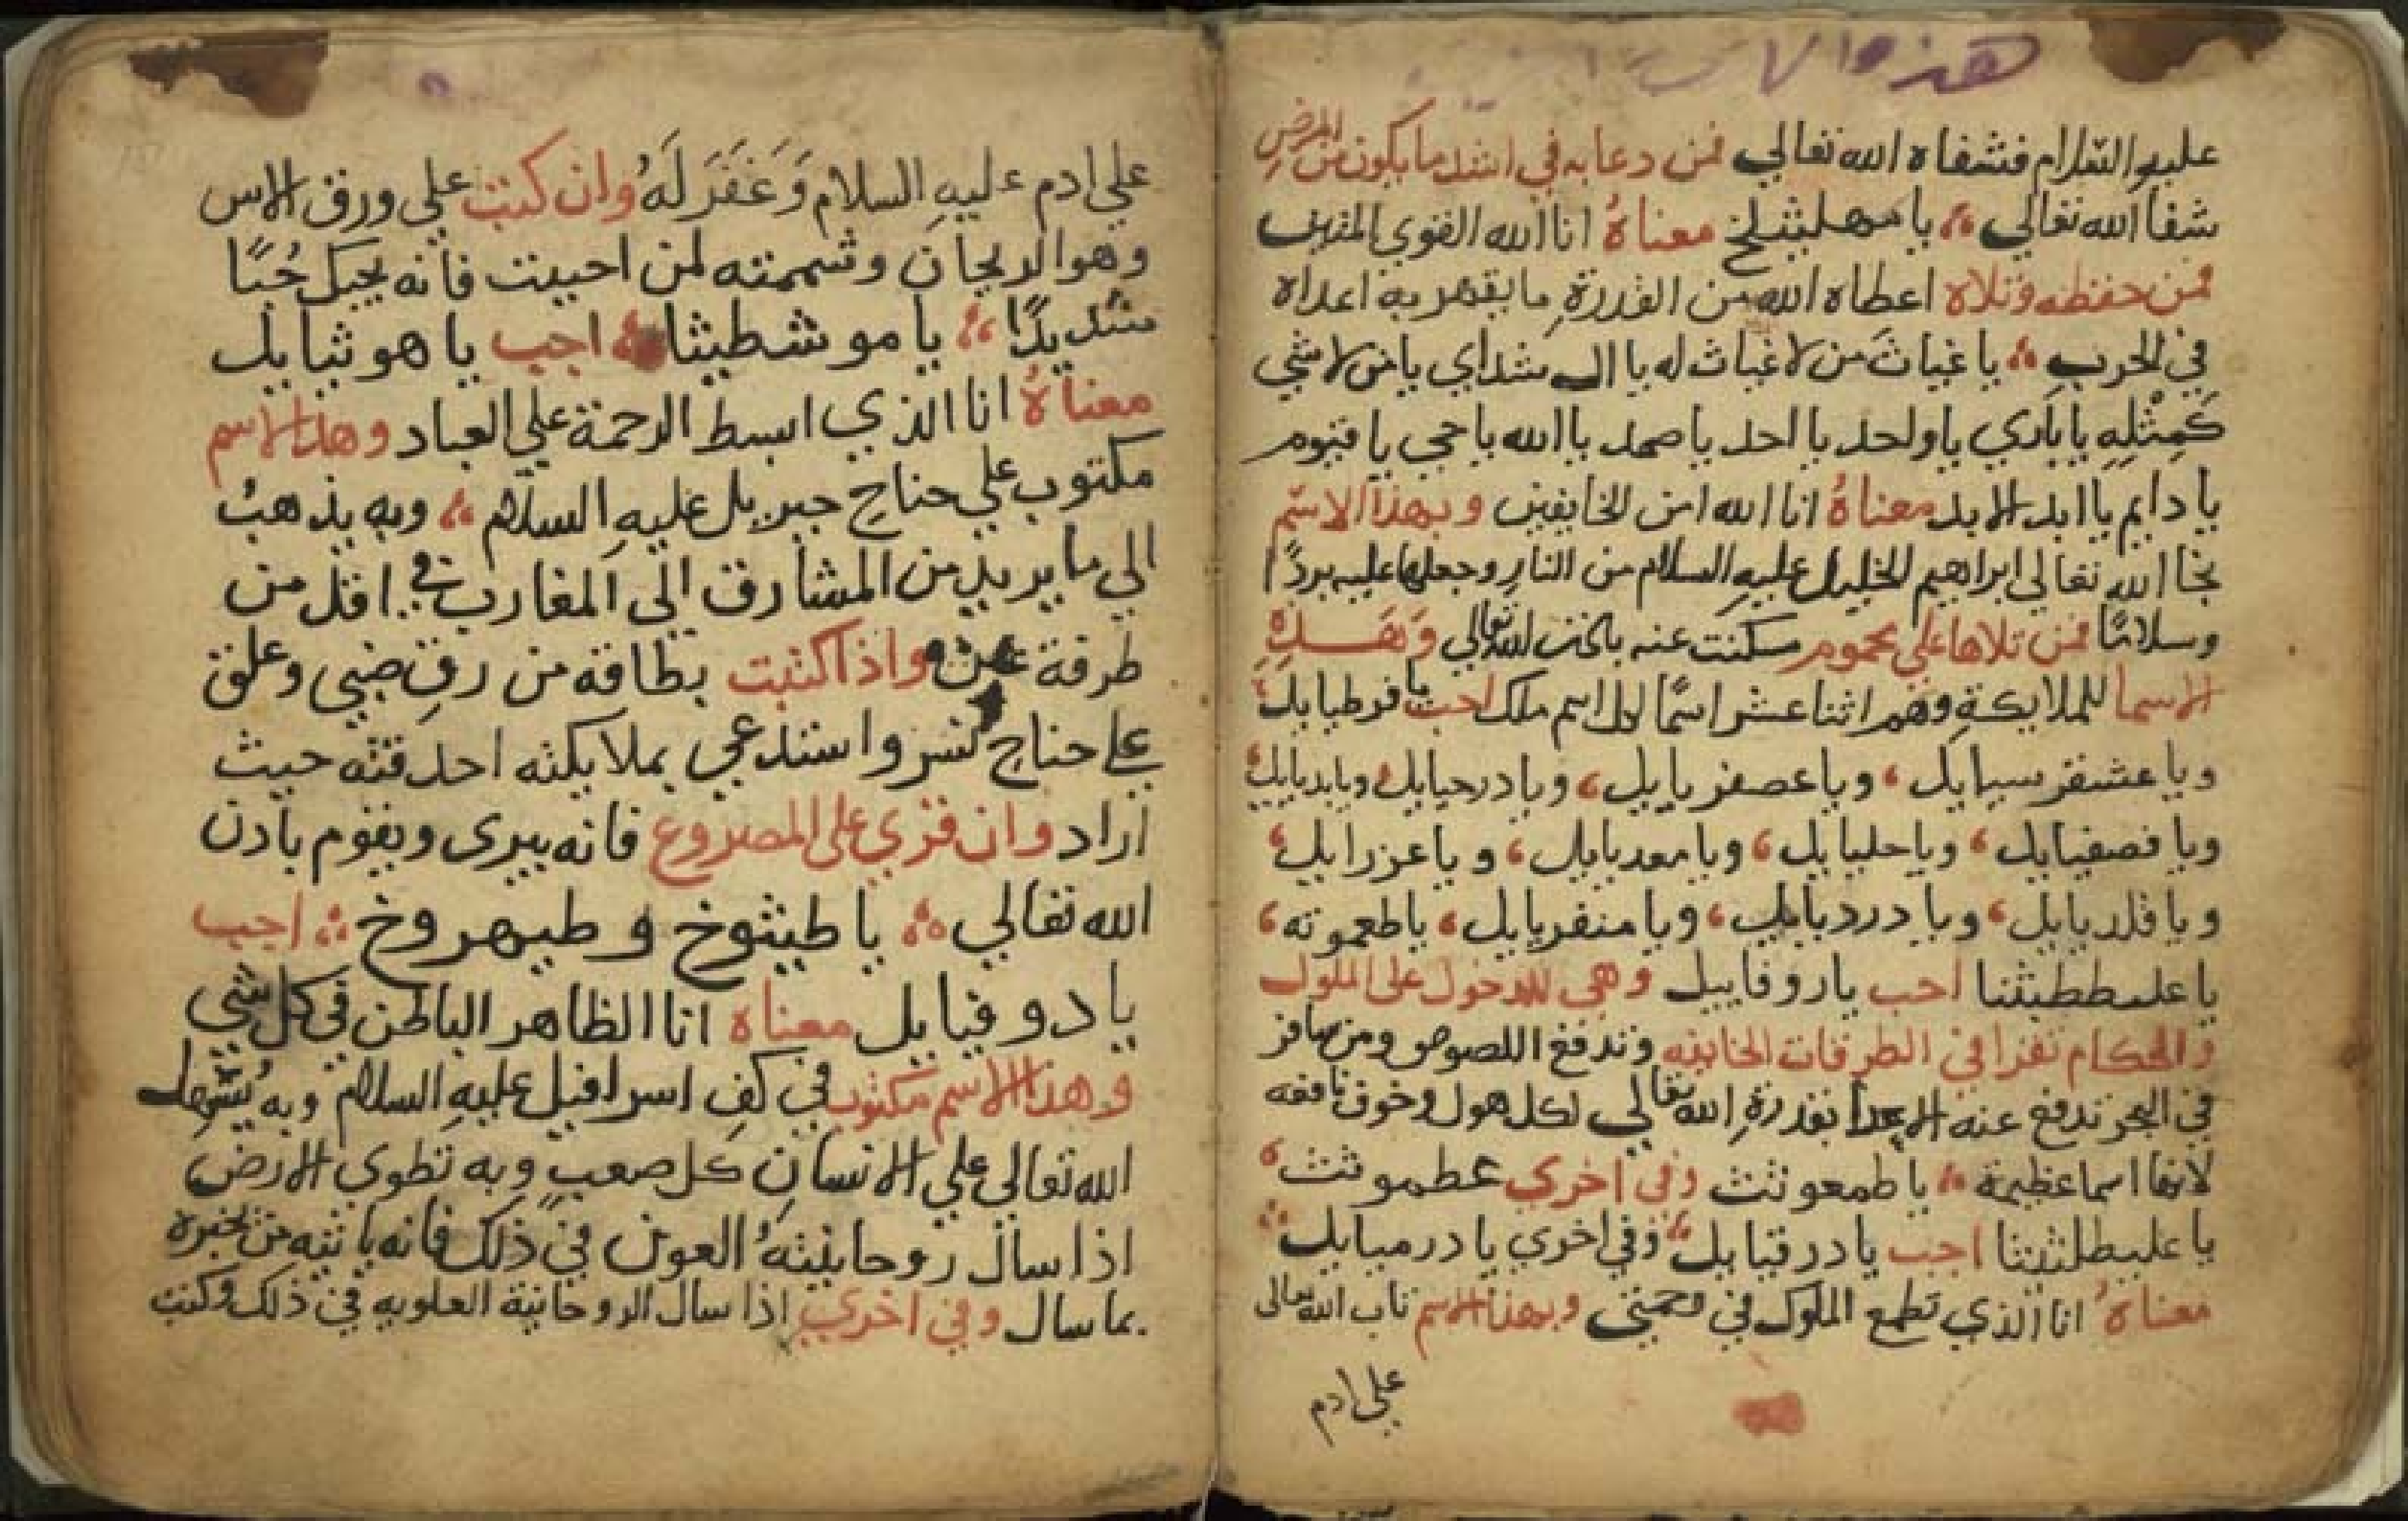 هذه الا
عليه السلام فشفاه الله تعالي فمن دعا به في اشد ما يكون من المرض
شفا الله تعالي يا مهلبثلخ معناهُ انا الله القوي المتين
فمن حفظه وتلاه اعطاه الله من القدرةِ ما يقهر به اعداه
في الحرب يا غياثَ من لا غياث له يا ال شداي يا من لا شي
كَمِثْلِهِ يا باري يا واحد يا احد يا صمد يا الله يا حي يا قيوم
يا دايم يا ابد الابد معناهُ انا الله امن الخايفين وبهذا الاسم
نجا الله تعالي ابراهيم الخليل عليه السلام من النارِ وجعلها عليه بردًا
وسلامًا فمن تلاها علي محموم سكنت عنه باذن الله تعالي وَهَـذِهِ
الاسما للملايكةِ وهم اثنا عشر اسمًا لكل اسم ملك اجب يا قرطيايل
ويا عشقر سيايل ويا عصفريايل ويا درحيايل ويا بديايل
ويا قصفيايل ويا حليايل ويا معديايل ويا عزرايل
ويا قلديايل ويا درديايل ويا منفريايل يا طعموته
يا علططيثنا اجب يا روفاييل وهي للدخول على الملوك
والحكام تقرا في الطرقات الخايفه وتدفع اللصوص ومن سافر
في البحر تدفع عنه الاعدا بقدرةِ الله تعالي لكل هول وخوف نافعه
لانها اسما عظيمة يا طمعوثث وفي اخري عطموثث
يا عليطلثيثا اجب يا درقيايل وفي اخري يا درميايل
معناهُ انا الذي تطمع الملوك في رحمتي وبهذا الاسم تاب الله تعالى
علي ادم
علي ادم عليهِ السلام وَغَفَرَ لَهُ وان كتبت علي ورق الاس
وهو الريحان وشممته لمن احببت فانه يحبك حُبًا
شديدًا يا موشطيثا اجب يا هوثيايل
معناهُ انا الذي ابسط الرحمة علي العباد وهذا الاسم
مكتوب علي جناحِ جبريل عليهِ السلام وبهِ يذهبُ
الي ما يريد من المشارق الى المغارب في اقل من
طرفة عين واذا كتبت بطاقه من رقِ ضبي وعلق
علي جناحِ نسر واستدعي بملايكته احدقته حيث
اراد وان قري على المصروع فانه يبرى ويقوم بادن
الله تعالي يا طيثوخ وطيهروخ اجب
يا دوقيايل معناه انا الظاهر الباطن في كل شي
وهذا الاسم مكتوب في كفِ اسرافيل عليهِ السلام وبه يُسَهل
الله تعالى علي الانسانِ كل صعبٍ وبه تطوي الارض
اذا سال روحانيتهُ العون في ذلك فانه ياتيه من يخبره
بما سال وفي اخري اذا سال الروحانية العلويه في ذلك وكتبت